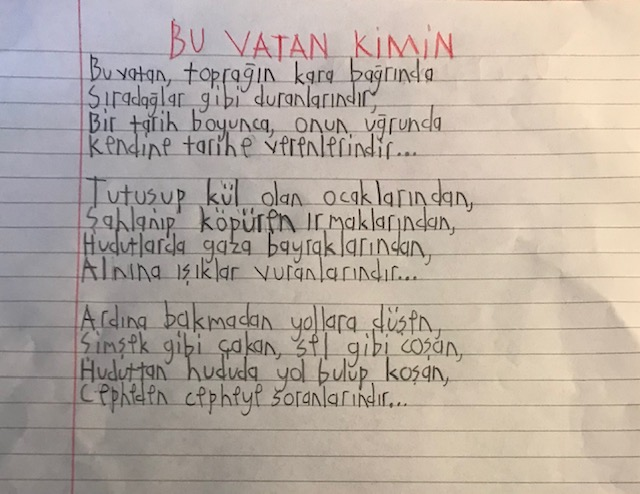 BU VATAN KİMİN
Bu vatan, toprağın kara bağrında
Sıradağlar gibi duranlarındır,
Bir tarih boyunca, onun uğrunda
Kendine tarihe verenlerindir...
Tutuşup kül olan ocaklarından,
Şahlanıp köpüren ırmaklarından,
Hudutlarda gaza bayraklarından,
Alnına ışıklar vuranlarındır...
Ardına bakmadan yollara düşen,
Şimşek gibi çakan, sel gibi coşan,
Huduttan hududa yol bulup koşan,
Cepheden cepheye soranlarındır...